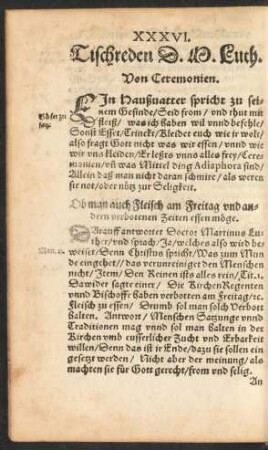 XXXVI.
Tischreden D. M. Luth.
Von Ceremonien.
EIn Haußuatter spricht zu sei-
nem Gesinde / Seid from / vnd thut mit
fleiß / was ich haben wil vnnd befehle /
Sonst Esset / Trincket / Kleidet euch wie jr wolt /
also fragt Gott nicht was wir essen / vnnd wie
wir vns kleiden / Er leßts vnns alles frey / Cere-
monien / vñ was Mittel ding Adiaphora sind /
Allein daß man nicht daran schmire / als weren
sie not / oder nütz zur Seligkeit.
Ob man auch Fleisch am Freitag vnd an-
dern verbottenen Zeiten essen möge.
DArauff antwortet Doctor Martinus Lu-
ther / vnd sprach / Ja / welches also wird be-
weiset / Denn Christus spricht / Was zum Mun-
de eingehet / das verunreiniget den Menschen
nicht / Item / Den Reinen ists alles rein / Tit. 1.
Da wider sagte einer / Die KirchenRegenten
vnnd Bischoffe haben verbotten am Freitag / ꝛc.
Fleisch zu essen / Drumb sol man solch Verbott
halten. Antwort / Menschen Satzunge vnnd
Traditionen mag vnnd sol man halten in der
Kirchen vmb eusserlicher Zucht vnd Erbarkeit
willen / Denn das ist jr Ende / dazu sie sollen ein
gesetzt werden / Nicht aber der meinung / als
machten sie für Gott gerecht / from vnd selig.
An